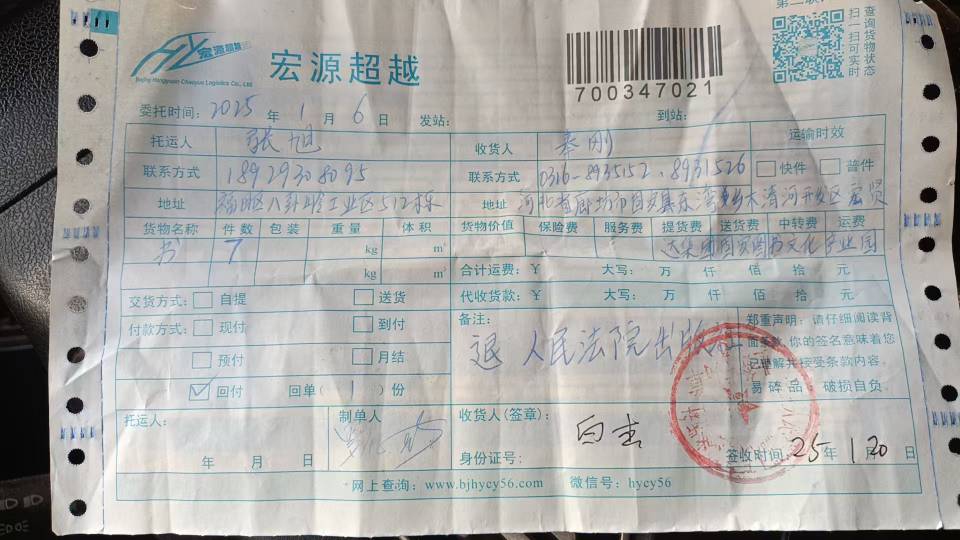 第二联
宏源超越
Beijing Hongyuan Chaoyue Logistics Co., Ltd.
宏源超越
700347021
查询货物状态
扫一扫可实时
委托时间: 2025 年 1 月 6 日 发站: 到站:
托运人 张旭 收货人 秦刚 运输时效
联系方式 18929308095 联系方式 0316-8935152、8931526 快件 普件
地址 福田区八卦岭工业区512栋 地址 河北省廊坊市固安县东湾乡木清河开发区
货物名称 件数 包装 重量 体积 货物价值 保险费 服务费 提货费 送货费 中转费 运费
书 7 kg m³ 文化产业园
kg m³ 合计运费: ¥ 大写: 万 仟 佰 拾 元
交货方式: 自提 送货 代收货款: ¥ 大写: 万 仟 佰 拾 元
付款方式: 现付 到付
预付 月结
回付 回单( 1 )份
备注: 退 人民法院出版社
郑重声明: 请仔细阅读背
面条款,你的签名意味着您
已理解并接受条款内容。
易碎品 破损自负。
托运人: 制单人 收货人(签章): 白杰
年 月 日 身份证号: 签收时间: 25 年 1 月 20 日
网上查询: www.bjhycy56.com 微信号: hycy56